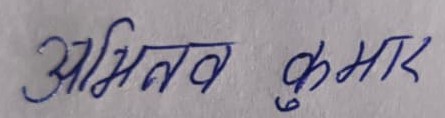 अभिनव कुमार